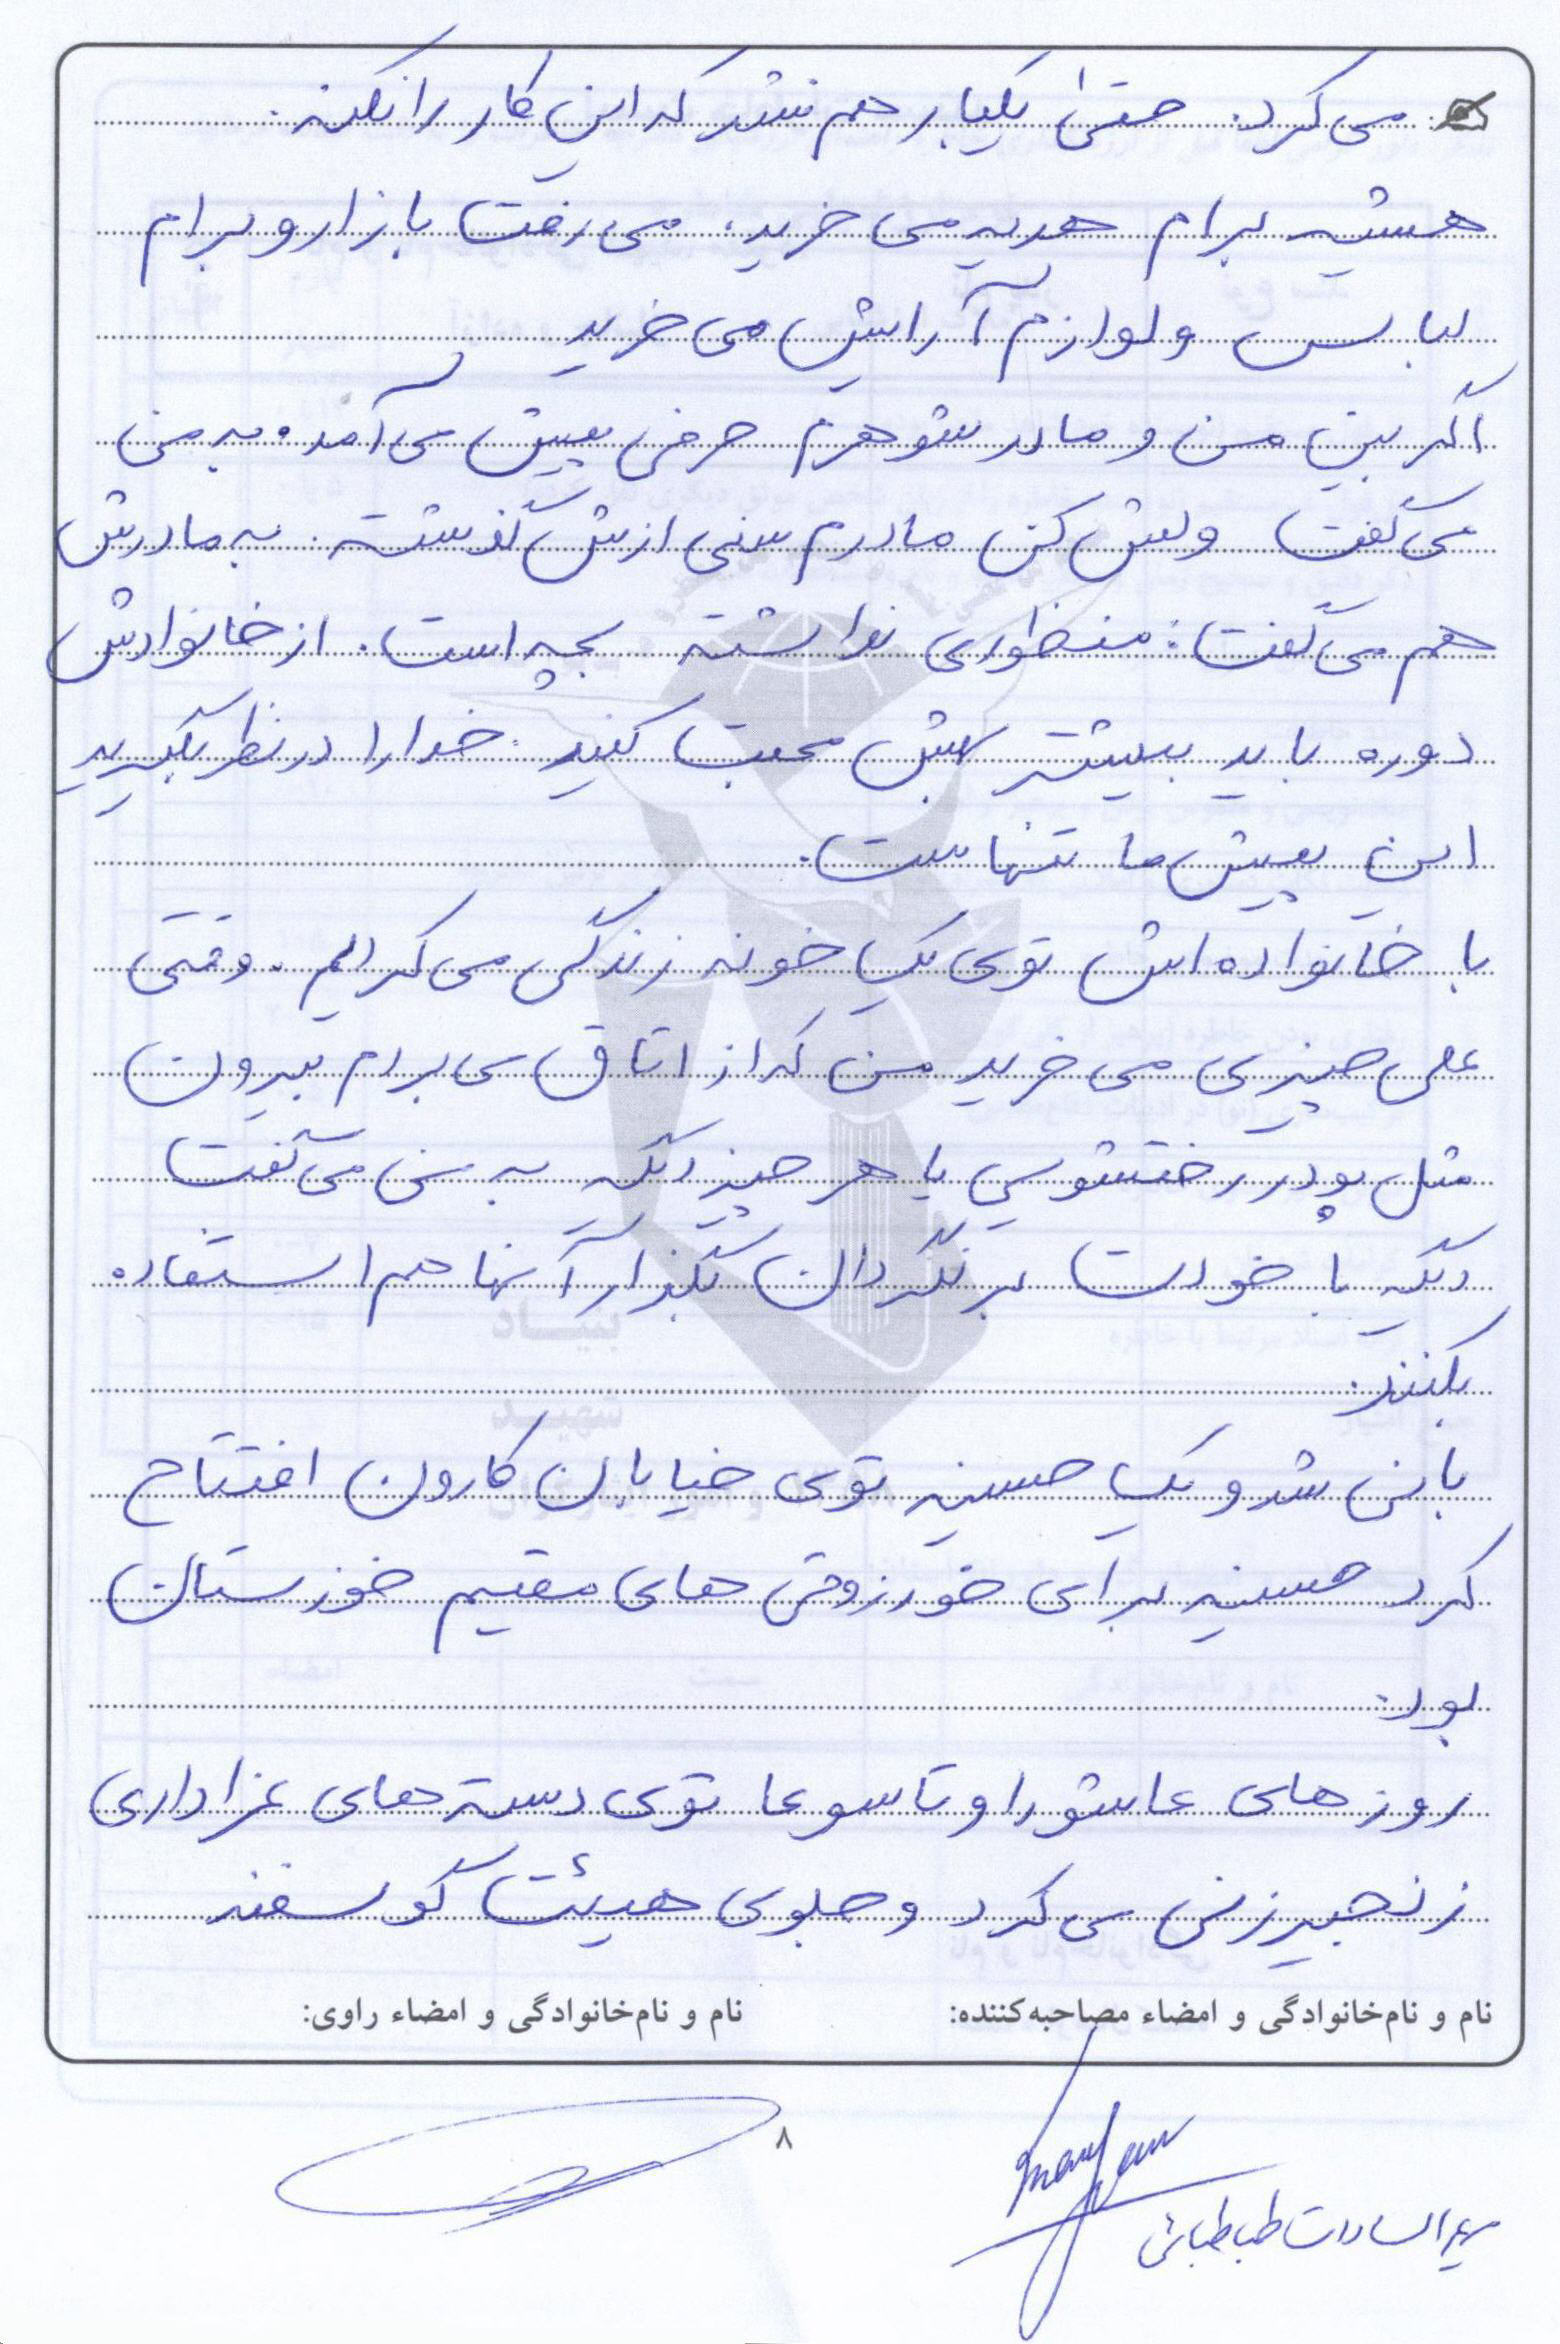 می‌کرد. حتیٰ یکبار هم نشد که این کار را نکنه.
همیشه برام هدیه می‌خرید، می‌رفت بازار و برام
لباس و لوازم آرایش می‌خرید
اگر بین من و مادر شوهرم حرفی پیش می‌آمد، به من
می‌گفت ولش کن مادرم سنی ازش گذشته. به مادرش
هم می‌گفت: منظوری نداشته بچه است. از خانوادش
دوره باید بیشتر بهش محبت کنید. خدا را در نظر بگیرید
این پیش ما تنهاست.
با خانواده‌اش توی یک خونه زندگی می‌کردیم. وقتی
علی چیزی می‌خرید من که از اتاق می‌بردم بیرون
مثل پودر رختشویی یا هر چیز دیگه به من می‌گفت
دیگه با خودت برنگردان بگذار آنها هم استفاده
بکنند.
بانی شد و یک حسینیه توی خیابان کارون افتتاح
کرد حسینیه برای خورزوقی‌های مقیم خوزستان
بود.
روزهای عاشورا و تاسوعا توی دسته‌های عزاداری
زنجیرزنی می‌کرد و جلوی هیئت گوسفند
نام و نام‌خانوادگی و امضاء مصاحبه‌کننده: نام و نام‌خانوادگی و امضاء راوی:
۸
maryam
مریم السادات طباطبائی